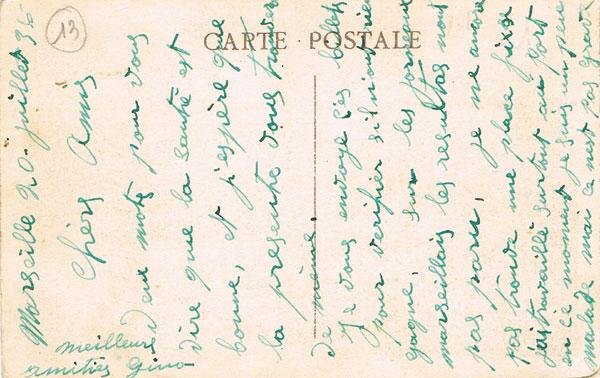 13
CARTE POSTALE
Marseille 20 juillet 35
Chers Amis
Deux mots pour vous
dire que la santé est
bonne, et j'espère que
la présente vous trouvera
de même.
Je vous envoye les billets
pour verifier s'il n'ont rien
gagné, sur les journeaux
marseillais les resultas n'ont
pas paru, je ne ancore
pas trouvé une place fixse
j'ai travaillé surtout au port
en ce moment je suis un peu
malade mai ce n'est pas grave
meilleures
amitiés Gino